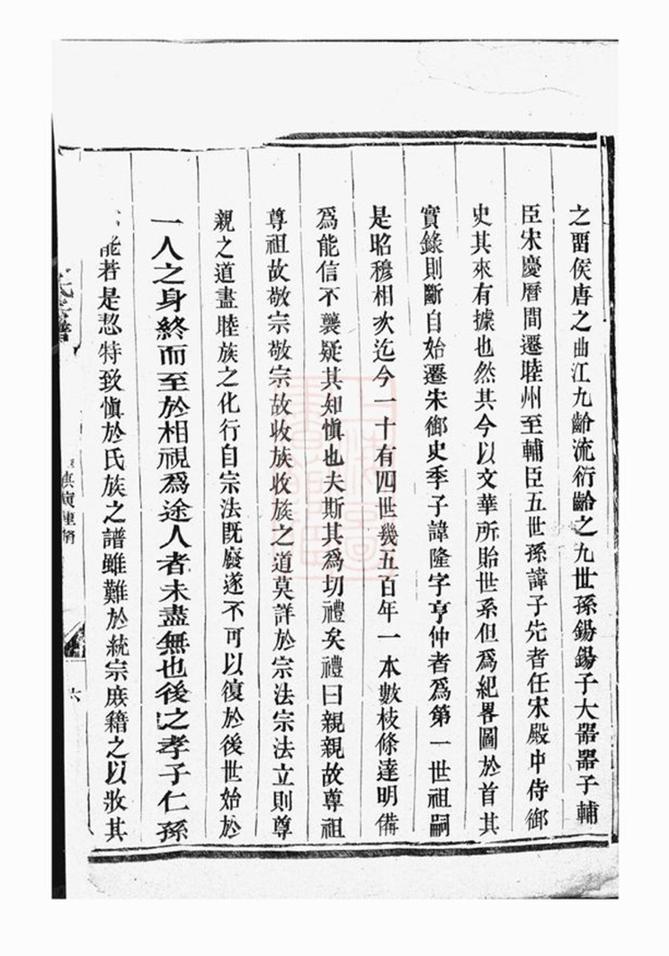 之畱侯唐之曲江九齡流衍齡之九世孫錫錫子大器器子輔
臣宋慶曆間遷睦州至輔臣五世孫諱子先者任宋殿中侍御
史其來有據也然其今以文華所貽世系但爲紀畧圖於首其
實錄則斷自始遷宋御史季子諱隆字亨仲者爲第一世祖嗣
是昭穆相次迄今一十有四世幾五百年一本數枝條達明備
爲能信不襲疑其知愼也夫斯其爲切禮矣禮曰親親故尊祖
尊祖故敬宗敬宗故收族收族之道莫詳於宗法宗法立則尊
親之道盡睦族之化行自宗法既廢遂不可以復於後世始於
一人之身終而至於相視爲途人者未盡無也後之孝子仁孫
能若是恝特致愼於氏族之譜雖難於統宗庻籍之以收其
氏宗譜
六